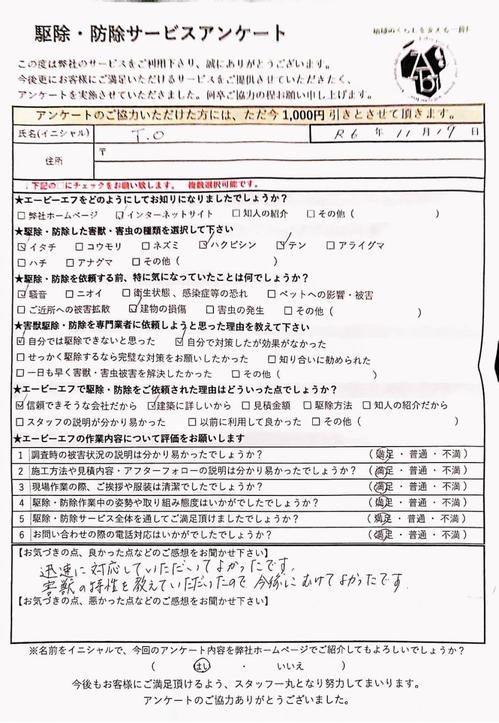 駆除・防除サービスアンケート
この度は弊社のサービスをご利用下さり、誠にありがとうございます。
今後更にお客様にご満足いただけるサービスをご提供させていただきたく、
アンケートを実施させていただきました。何卒ご協力の程お願い申し上げます。
アンケートのご協力いただけた方には、ただ今1,000円引きとさせて頂きます。
氏名(イニシャル) T.O R6 年 11月 19日
住所 〒
↓下記の□にチェックをお願い致します。 複数選択可能です。
★エービーエフをどのようにしてお知りになりましたでしょうか?
□弊社ホームページ ☑インターネットサイト □知人の紹介 □その他( )
★駆除・防除した害獣・害虫の種類を選択して下さい
☑イタチ □コウモリ □ネズミ ☑ハクビシン ☑テン □アライグマ
□ハチ □アナグマ □その他( )
★駆除・防除を依頼する前、特に気になっていたことは何でしょうか?
☑騒音 □ニオイ ☑衛生状態、感染症等の恐れ □ペットへの影響・被害
□ご近所への被害拡散 ☑建物の損傷 □害虫の発生 □その他( )
★害獣駆除・防除を専門業者に依頼しようと思った理由を教えて下さい
☑自分では駆除できないと思った ☑自分で対策したが効果がなかった
□せっかく駆除するなら完璧な対策をお願いしたかった □知り合いに勧められた
□一日も早く害獣・害虫被害を解決したかった □その他( )
★エービーエフで駆除・防除をご依頼された理由はどういった点でしょうか?
☑信頼できそうな会社だから ☑建築に詳しいから □見積金額 □駆除方法 □知人の紹介だから
□スタッフの説明が分かり易かった □以前に利用して良かった □その他( )
★エービーエフの作業内容について評価をお願いします
1 調査時の被害状況の説明は分かり易かったでしょうか? (満足・普通・不満)
2 施工方法や見積内容・アフターフォローの説明は分かり易かったでしょうか? (満足・普通・不満)
3 現場作業の際、ご挨拶や服装は清潔でしたでしょうか? (満足・普通・不満)
4 駆除・防除作業中の姿勢や取り組み態度はいかがでしたでしょうか? (満足・普通・不満)
5 駆除・防除サービス全体を通してご満足頂けましたでしょうか? (満足・普通・不満)
6 お問い合わせの際の電話対応はいかがでしたでしょうか? (満足・普通・不満)
【お気づきの点、良かった点などのご感想をお聞かせ下さい】
迅速に対応していただいてよかったです。
害獣の特性を教えていただいたので今後にむけてよかったです
【お気づきの点、悪かった点などのご感想をお聞かせ下さい】
※名前をイニシャルで、今回のアンケート内容を弊社ホームページでご紹介してもよろしいでしょうか?
( はい ・ いいえ )
今後もお客様にご満足頂けるよう、スタッフ一丸となり努力してまいります。
アンケートのご協力ありがとうございました。